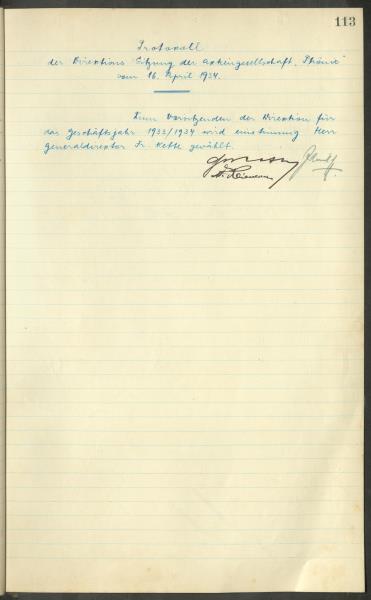 113
Protokoll
der Direktions Sitzung der Aktiengesellschaft "Phönix"
vom 16. April 1934.
Zum Vorsitzenden der Direktion für
das Geschäftsjahr 1933/1934 wird einstimmig Herr
Generaldirektor Fr. Kette gewählt.